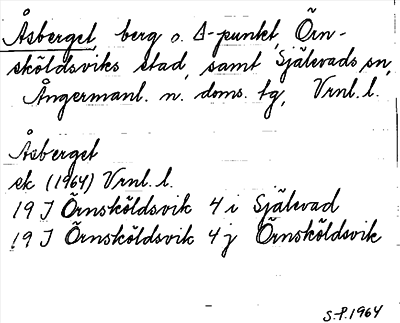 Åsberget, berg o. Δ-punkt, Örn-
sköldsviks stad, samt Själevads sn,
Ångermanl. n. doms. tg, Vrnl. l.
Åsberget
ek (1964) Vrnl. l.
19 J Örnsköldsvik 4 i Själevad
19 J Örnsköldsvik 4 j Örnsköldsvik
S-P. 1964